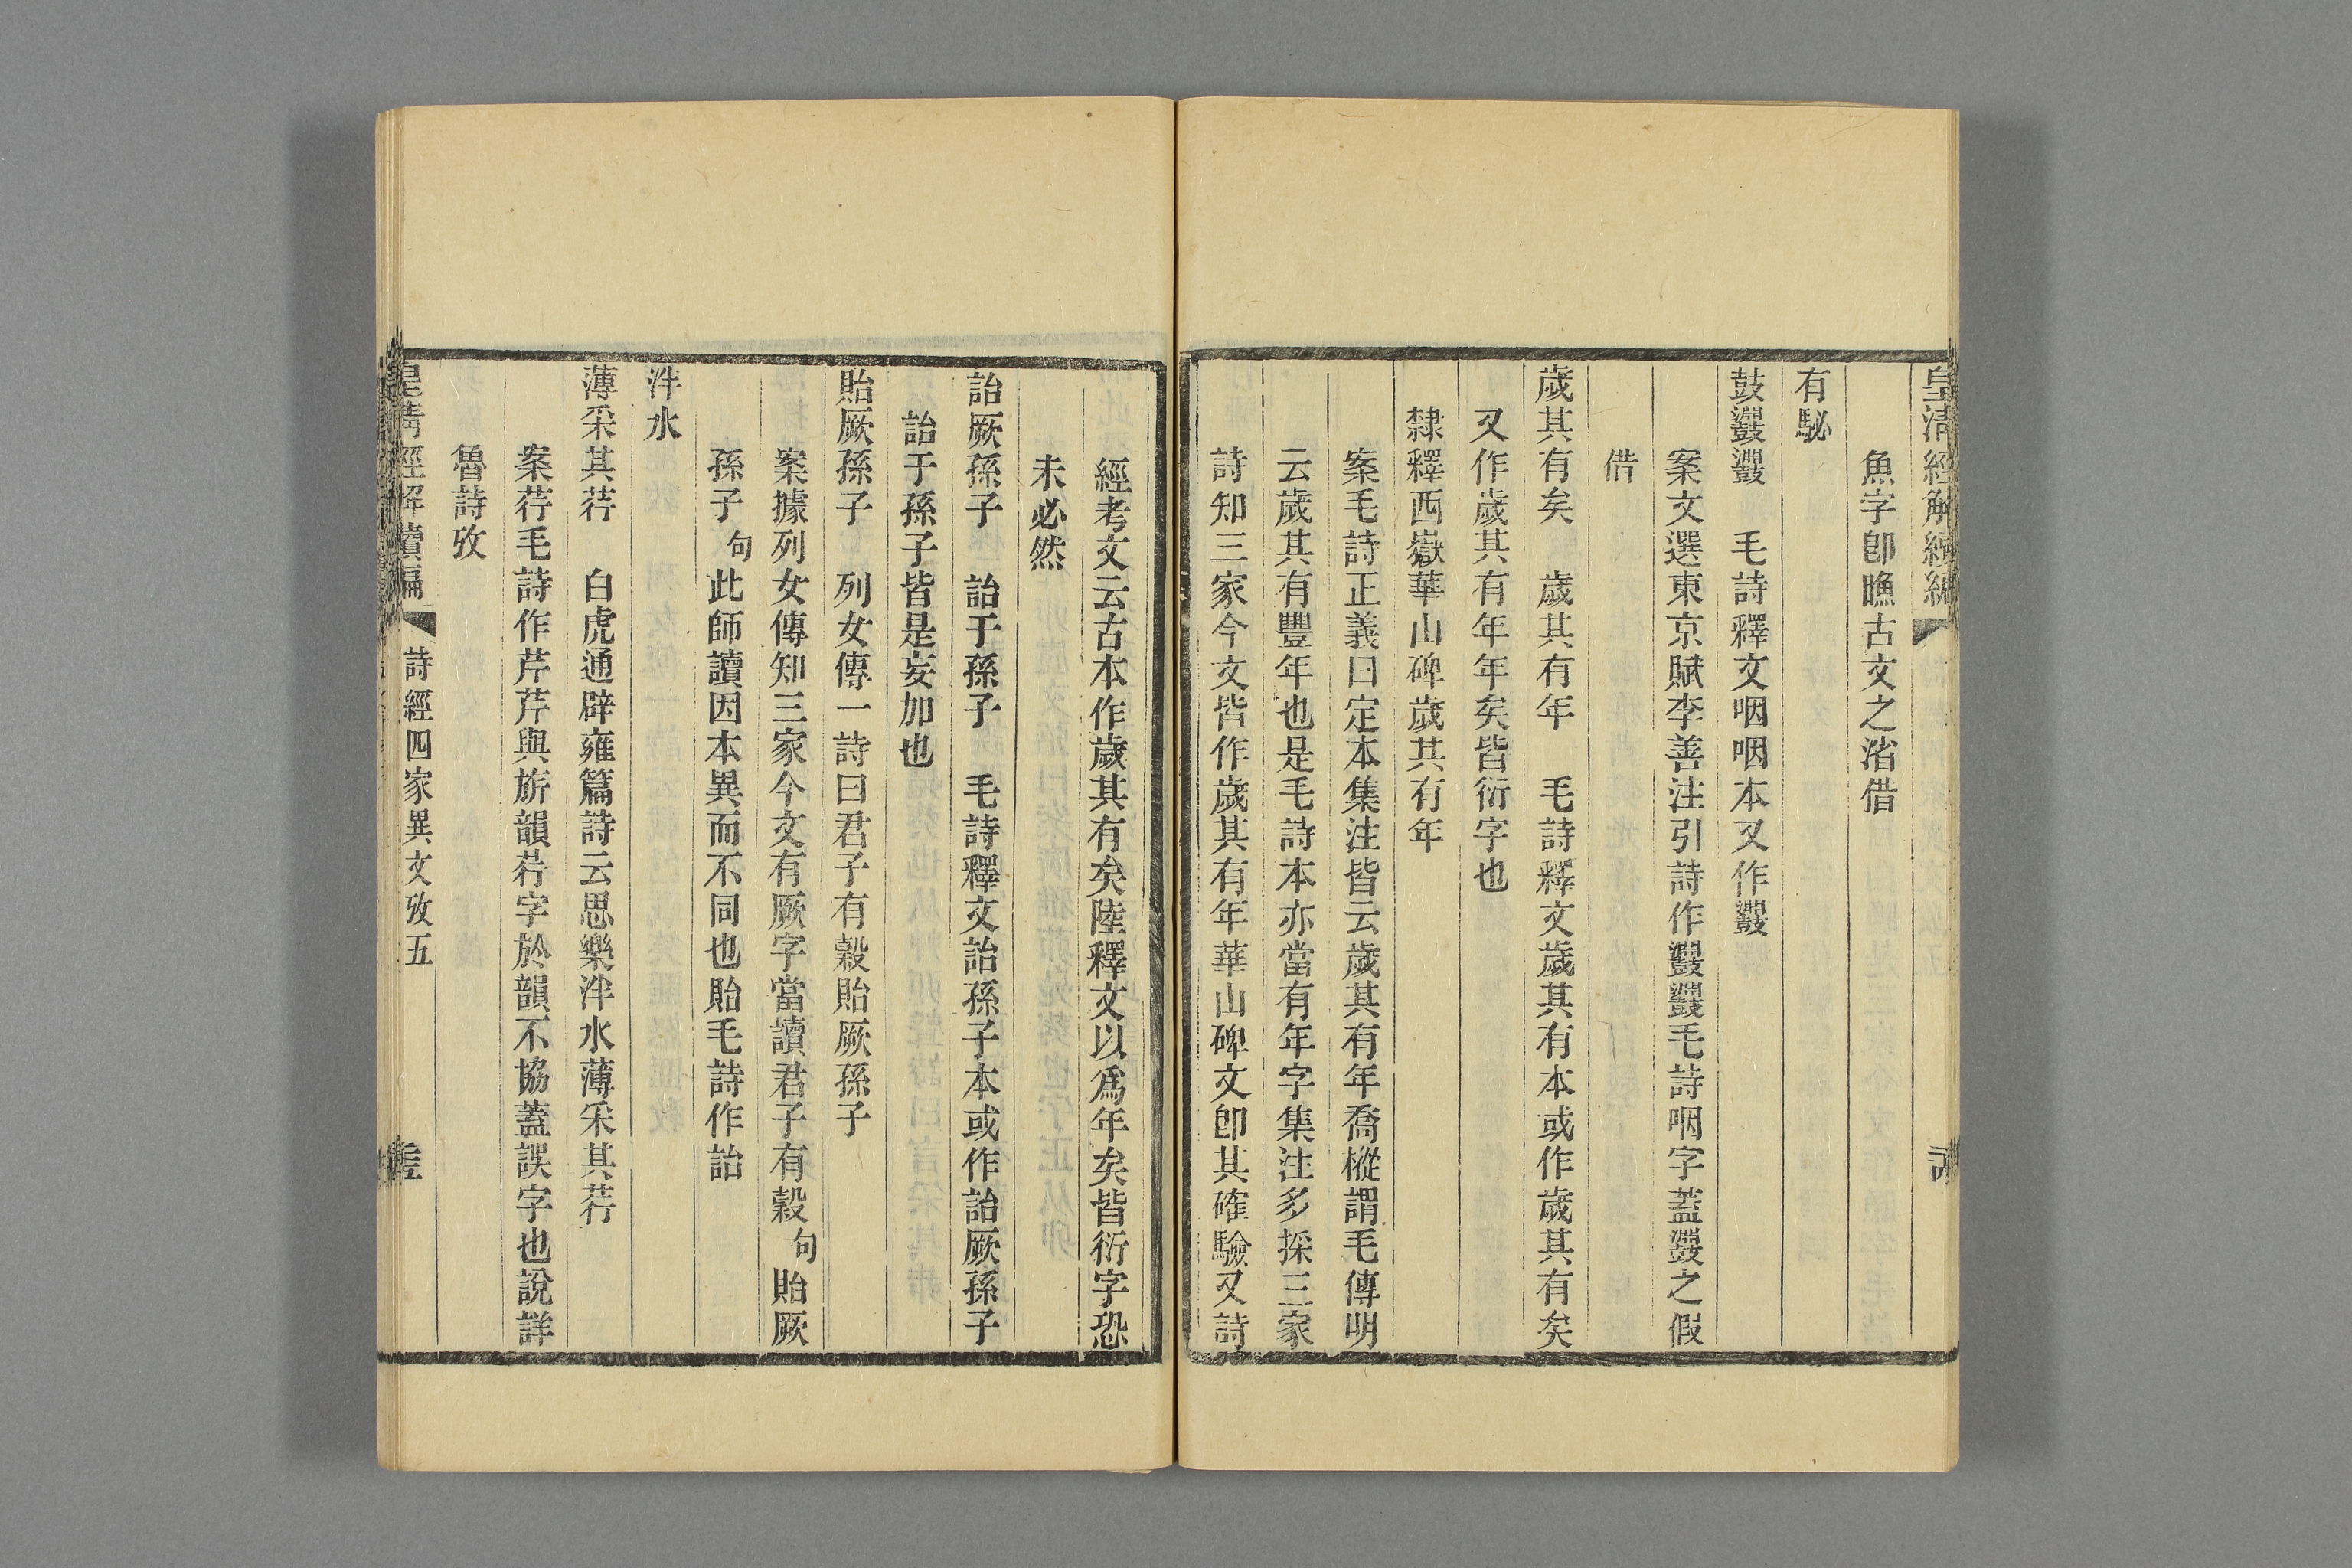 皇清經解續編
魚字卽瞧古文之渻借
有駜
鼓鼝鼝　毛詩釋文咽咽本又作鼝
案文選東京賦李善注引詩作鼝鼝毛詩咽字蓋鼝之假
借
歲其有矣　歲其有年　毛詩釋文歲其有本或作歲其有矣
又作歲其有年年矣皆衍字也
隸釋西嶽華山碑歲其有年
案毛詩正義曰定本集注皆云歲其有年喬樅謂毛傳明
云歲其有豐年也是毛詩本亦當有年字集注多採三家
詩知三家今文皆作歲其有年華山碑文卽其確驗又詩
經考文云古本作歲其有矣陸釋文以爲年矣皆衍字恐
未必然
詒厥孫子　詒于孫子　毛詩釋文詒孫子本或作詒厥孫子
詒于孫子皆是妄加也
貽厥孫子　列女傳一詩曰君子有穀貽厥孫子
案據列女傳知三家今文有厥字當讀君子有穀句貽厥
孫子句此師讀因本異而不同也貽毛詩作詒
泮水
薄采其荇　白虎通辟雍篇詩云思樂泮水薄采其荇
案荇毛詩作芹芹與旂韻荇字於韻不協蓋誤字也說詳
魯詩攷
皇清經解續編　詩經四家異文攷五